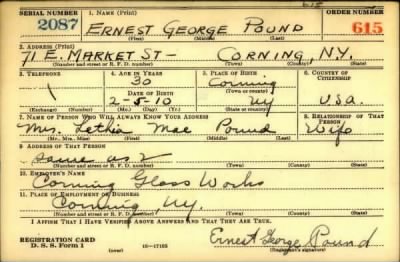 SERIAL NUMBER 1. NAME (Print) ORDER NUMBER
2087 ERNEST GEORGE POUND 615
(First) (Middle) (Last)
2. ADDRESS (Print)
71 E. MARKET ST - CORNING, N.Y.
(Number and street or R. F. D. number) (Town) (County) (State)
3. TELEPHONE 4. AGE IN YEARS 5. PLACE OF BIRTH 6. COUNTRY OF CITIZENSHIP
30 Corning
DATE OF BIRTH (Town or county)
2-5-10 NY U.S.A.
(Exchange) (Number) (Mo.) (Day) (Yr.) (State or country)
7. NAME OF PERSON WHO WILL ALWAYS KNOW YOUR ADDRESS 8. RELATIONSHIP OF THAT PERSON
Mrs. Lethia Mae Pound Wife
(Mr., Mrs., Miss) (First) (Middle) (Last)
9. ADDRESS OF THAT PERSON
same as 2
(Number and street or R. F. D. number) (Town) (County) (State)
10. EMPLOYER'S NAME
Corning Glass Works
11. PLACE OF EMPLOYMENT OR BUSINESS
Corning, NY.
(Number and street or R. F. D. number) (Town) (County) (State)
I AFFIRM THAT I HAVE VERIFIED ABOVE ANSWERS AND THAT THEY ARE TRUE.
REGISTRATION CARD
D. S. S. Form 1 (over) 16-17105 Ernest George Pound
(Registrant's signature)